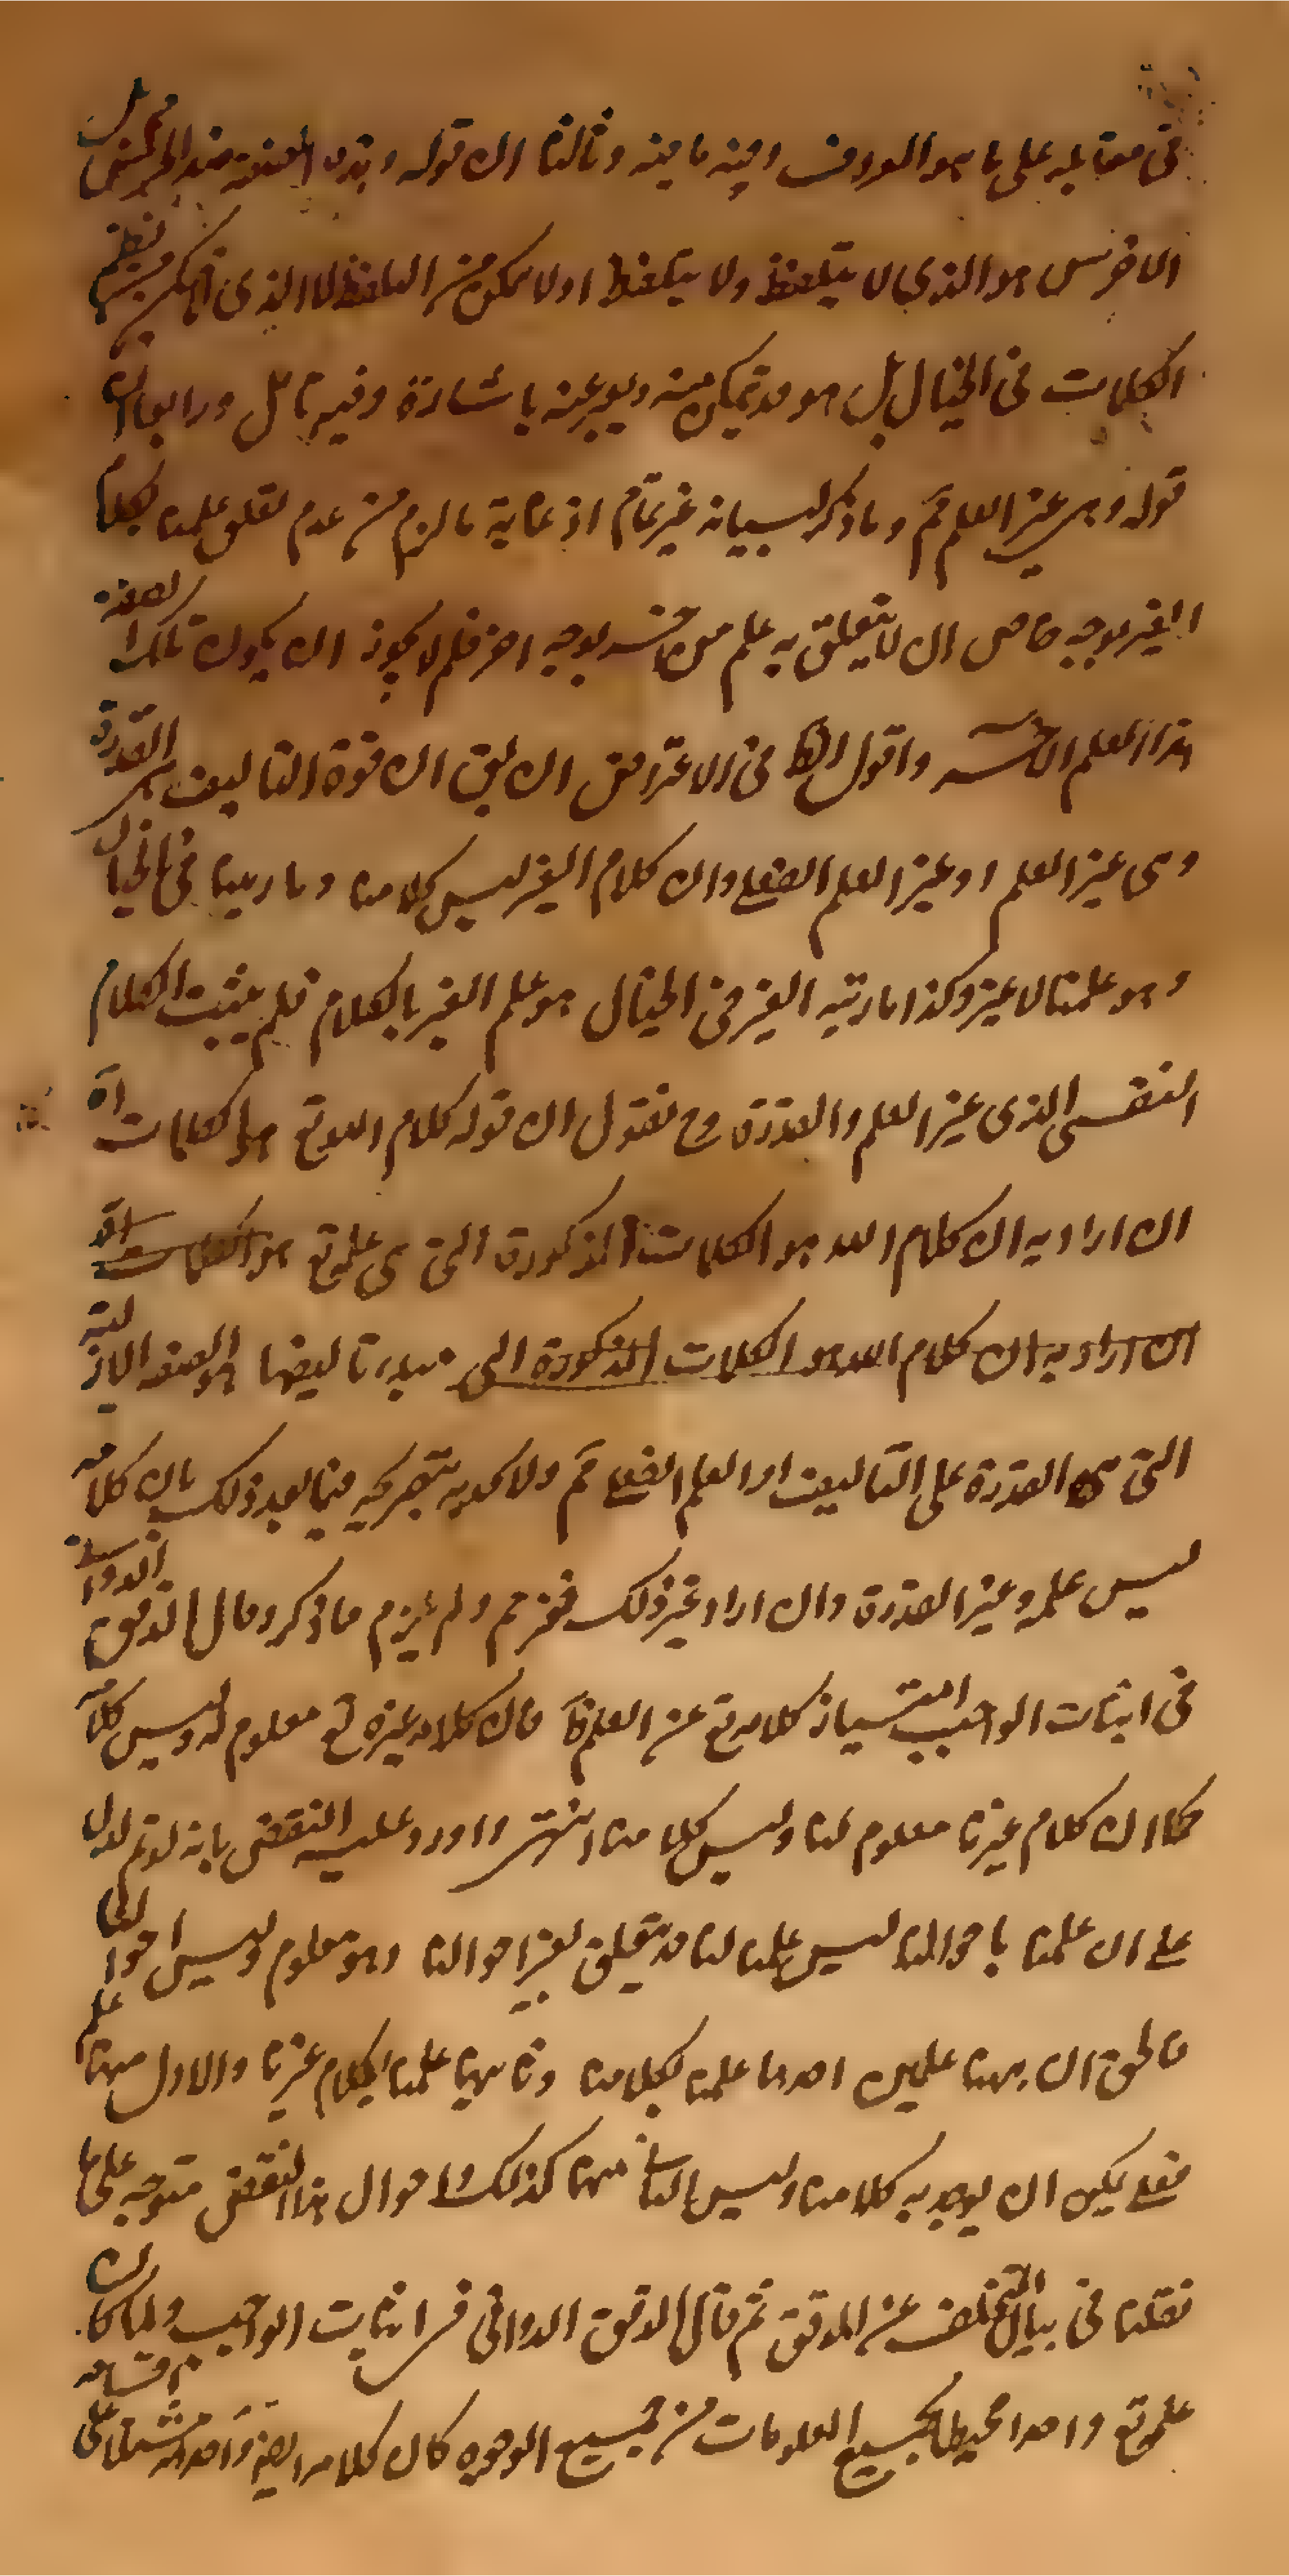 في مقابله على ما هو المعروف وفيه ما فيه وثالثا ان قوله وهذه الصفة ضد الخرس محل
الاخرس هو الذي لا يتلفظ ولا يتلفظ او لا يمكن من التلفظ لا الذي لا يمكن من نظم
الكلمات في الخيال بل هو قد يتمكن منه ويعبر عنه باشارة وفيه تامل ورابعا ان
قوله وهي غير العلم مم وما ذكر لبيانه غير تمام اذ غاية ما لزم من عدم تعلق علمنا بكلام
الغير بوجه خاص ان لا يتعلق به علم من جنسه بوجه اخر فلم لا يجوز ان يكون تلك الصفة
هذا العلم الخ واقول ايضا في الاعتراض ان يق ان قوة التاليف هي القدرة
وهي غير العلم او غير العلم الفعلي وان كلام الغير ليس كلامنا وما رتبنا في الخيال
وهو علمنا لا غير وكذا ما رتبه الغير في الخيال هو علم الغير بالكلام فلم يثبت الكلام
النفسي الذي غير العلم والقدرة وح نقول ان قوله كلام الله تع هو الكلمات اه
ان اراد به ان كلام الله هو الكلمات المذكورة التي هي علمه تع هو الكلمات اه
ان اراد به ان كلام الله هو الكلمات المذكورة التي مبدء تاليفها هو الصفة الازلية
التي هي القدرة على التاليف او العلم الفعلي مم ولا يجديه تصريحه فيما بعد ذلك بان كلامه
ليس علمه وغير القدرة وان اراد غير ذلك فغير مم ولم يلزم ما ذكر وقال المدقق الدواني
في اثبات الواجب امتياز كلامه تع عن العلم فان كلام غيره تع معلوم له وليس كلامه
كما ان كلام غيرنا معلوم لنا وليس كلامنا انتهى واورد عليه النقض بانه لو تم لدل
على ان علمنا باحوالنا ليس علمنا لنا قد يتعلق بغير احوالنا وهو معلوم وليس احوالنا
فالحق ان ههنا علمين احدهما علمنا بكلامنا وثانيهما علمنا بكلام غيرنا والاول منهما علم
فعلي يمكن ان يوجد به كلامنا وليس الثاني منهما كذلك والحال هذا النقض متوجه على ما
نقلنا في بيان التخلف عن المدقق ثم قال المدقق الدواني في اثبات الواجب ولما كان
علمه تع واحدا محيطا بجميع المعلومات من جميع الوجوه كان كلامه ايضا واحدا مشتملا على اقسامه